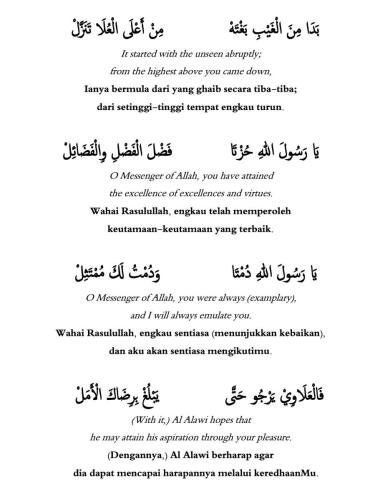 بَدَا مِنَ الْغَيْبِ بَغْتَهْ مِنْ أَعْلَى الْعُلَا تَنَزَّلْ
It started with the unseen abruptly;
from the highest above you came down,
Ianya bermula dari yang ghaib secara tiba-tiba;
dari setinggi-tinggi tempat engkau turun.
يَا رَسُولَ اللهِ حُزْتَا فَضْلَ الْفَضْلِ وِالْفَضَائِلْ
O Messenger of Allah, you have attained
the excellence of excellences and virtues.
Wahai Rasulullah, engkau telah memperoleh
keutamaan-keutamaan yang terbaik.
يَا رَسُولَ اللهِ دُمْتَا وَدُمْتُ لَكَ مُمْتَثِلْ
O Messenger of Allah, you were always (examplary),
and I will always emulate you.
Wahai Rasulullah, engkau sentiasa (menunjukkan kebaikan),
dan aku akan sentiasa mengikutimu.
فَالْعَلَاوِيْ يَرْجُو حَتَّى يَبْلُغْ بِرِضَاكَ الْأَمَلْ
(With it,) Al Alawi hopes that
he may attain his aspiration through your pleasure.
(Dengannya,) Al Alawi berharap agar
dia dapat mencapai harapannya melalui keredhaanMu.